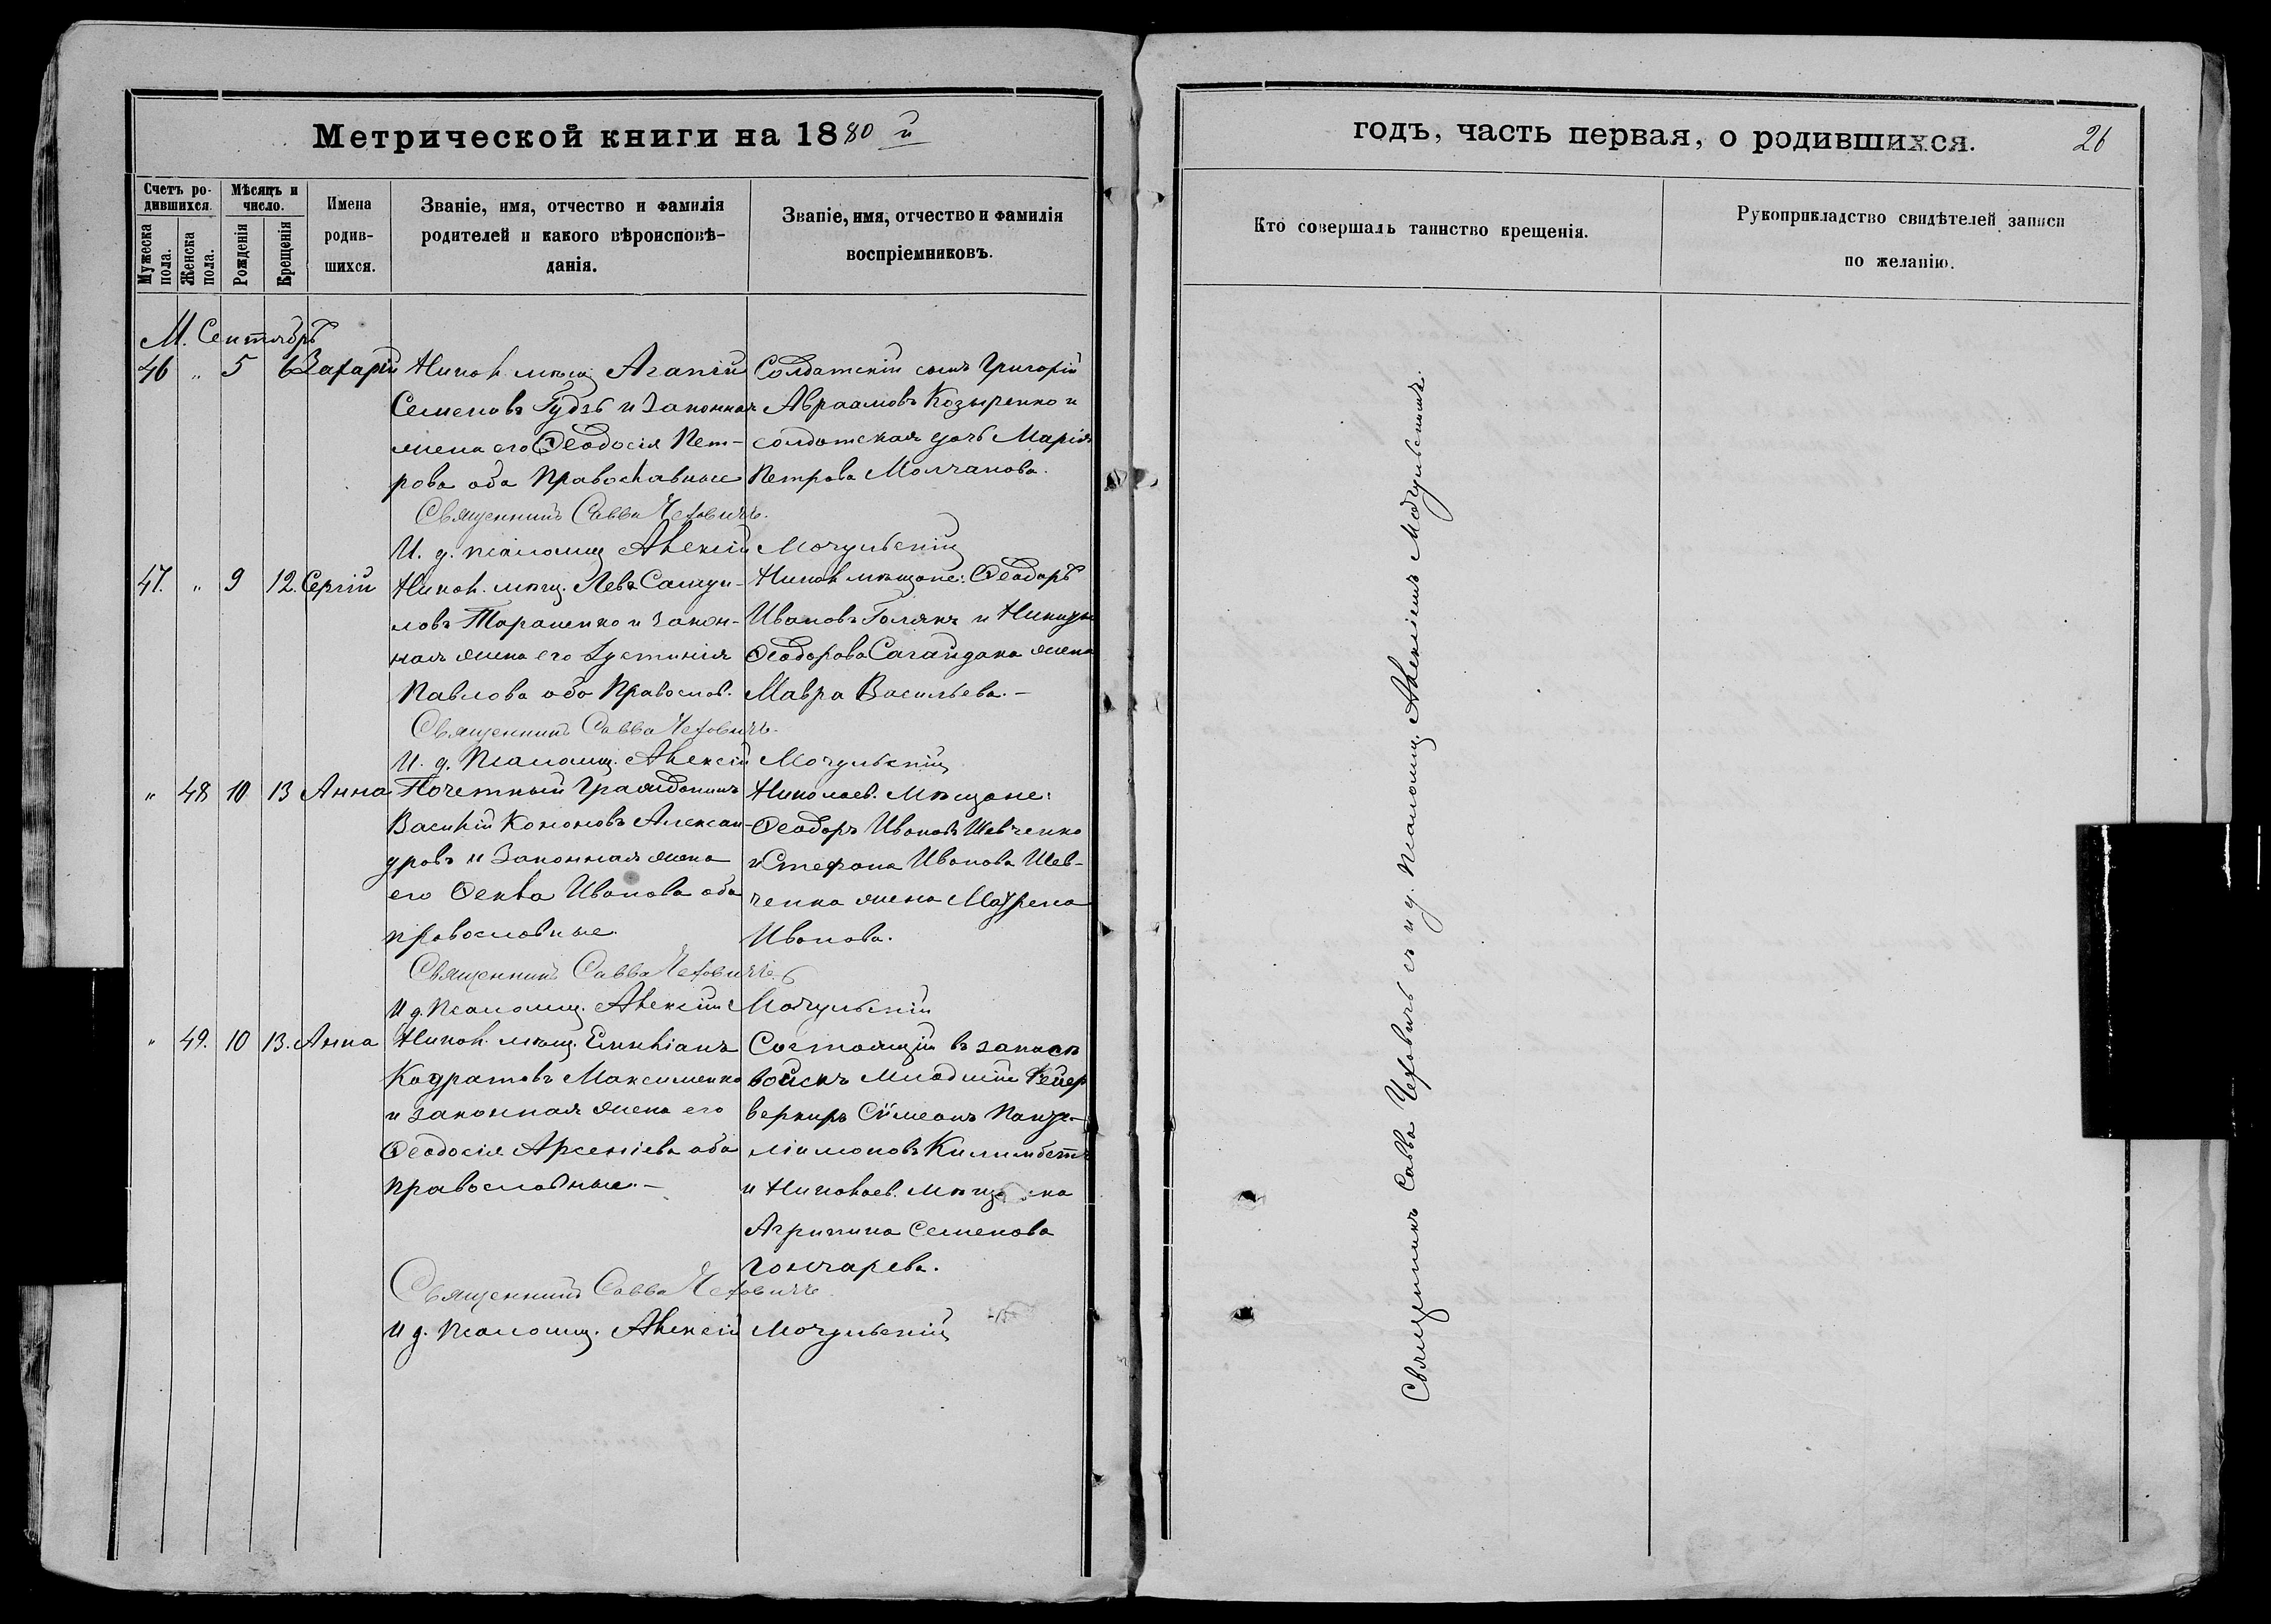 Метрической книги на 1880 й
Счетъ родившихся.
Мужеска пола.
Женска пола.
Мѣсяцъ и число.
Рожденія
Крещенія
Имена родившихся.
Званіе, имя, отчество и фамилія
родителей и какого вѣроисповѣ-
данія.
Званіе, имя, отчество и фамилія
воспріемниковъ.
М. Сентябрь
46 " 5 6 Захарій
Никол. мѣщ. Агапій
Семеновъ Гудзь и законная
жена его Ѳеодосія Пет-
рова оба Православные
Солдатскій сынъ Григорій
Авраамовъ Козыренко и
солдатская дочь Марія
Петрова Молчанова.
Священникъ Савва Чехович.
И. д. псаломщ. Алексій Мочульскій
47. " 9 12. Сергій
Никол. мѣщ. Левъ Самуи-
ловъ Тараненко и закон-
ная жена его Іустинія
Павлова оба Правосл.
Никол. мѣщане: Ѳеодоръ
Ивановъ Голякъ и Никиты
Ѳеодорова Сагайдака жена
Мавра Васильева. —
Священникъ Савва Чехович.
И. д. Псаломщ. Алексій Мочульскій
" 48 10 13 Анна
Почетный Гражданинъ
Василій Кононовъ Алексан-
дровъ и Законная жена
его Ѳекла Иванова оба
православные.
Николаев. Мѣщане:
Ѳеодоръ Ивановъ Шевченко
и Стефана Иванова Шев-
ченка жена Матрена
Иванова.
Священникъ Савва Чехович.
И д. Псаломщ. Алексій Мочульскій
" 49. 10 13. Анна
Никол. мѣщ. Емиліанъ
Кодратовъ Максименко
и законная жена его
Ѳеодосія Арсеніева оба
православные. —
Состоящій въ запасѣ
войскъ младшій Фейер
веркиръ Сімеонъ Панте-
лімоновъ
и Николаев. мѣщанка
Агрипина Семенова
Гончарева.
Священникъ Савва Чехович.
И д. Псаломщ. Алексій Мочульскій
годъ, часть первая, о родившихся.
26
Кто совершалъ таинство крещенія.
Рукоприкладство свидѣтелей записи
по желанію.
Священникъ Савва Чеховичъ съ и д. псаломщ. Алексіемъ Мочульскимъ.